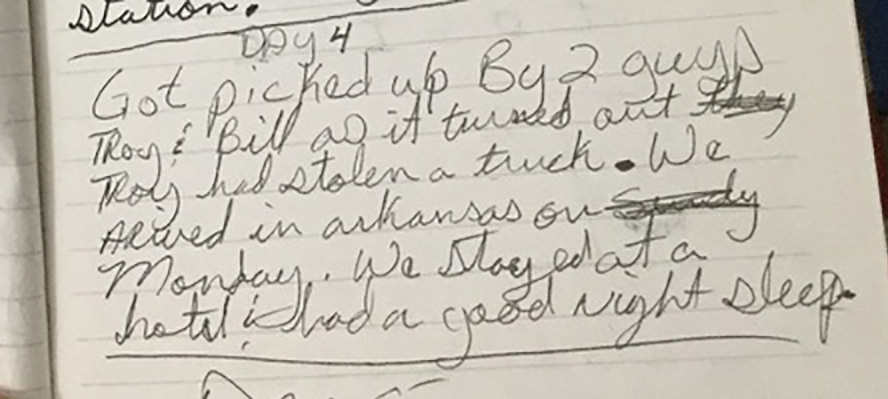 station.
DAy 4
Got picked up By 2 guys
TRoy & Bill as it turned out they
TRoy had stolen a truck. We
ARived in arkansas on Sunday
Monday. We stayed at a
hotel & had a good night sleep.